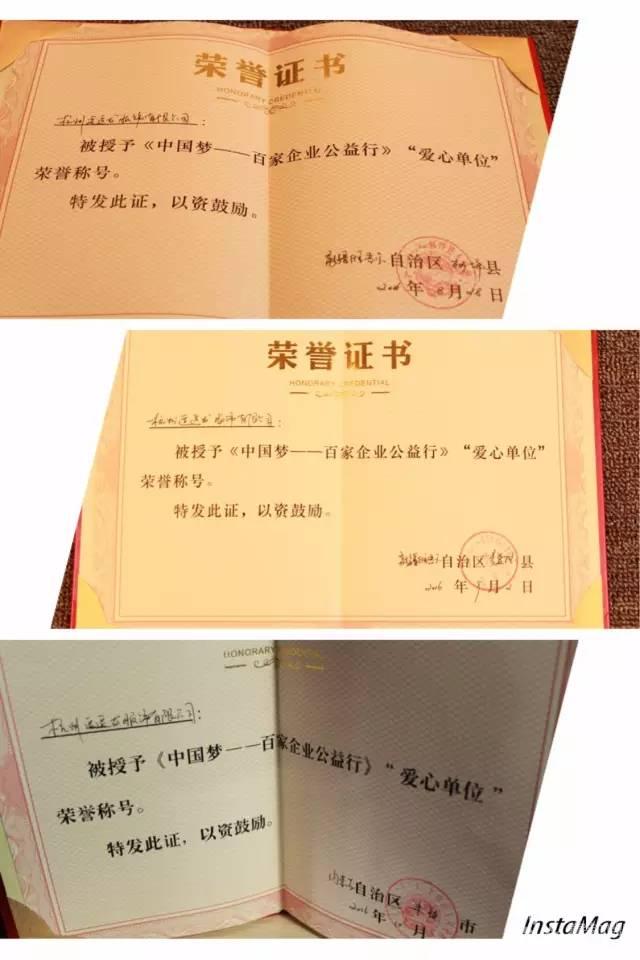 荣誉证书
HONORARY CREDENTIAL
杭州 服饰有限公司：
被授予《中国梦——百家企业公益行》“爱心单位”
荣誉称号。
特发此证，以资鼓励。
新疆维吾尔自治区 柯坪县
2016年 月28日
荣誉证书
HONORARY CREDENTIAL
杭州 服饰有限公司：
被授予《中国梦——百家企业公益行》“爱心单位”
荣誉称号。
特发此证，以资鼓励。
新疆维吾尔自治区 县
2016年 月2日
HONORARY CREDENTIAL
杭州 服饰有限公司：
被授予《中国梦——百家企业公益行》“爱心单位”
荣誉称号。
特发此证，以资鼓励。
内蒙古自治区 市
2016年 月 日
InstaMag